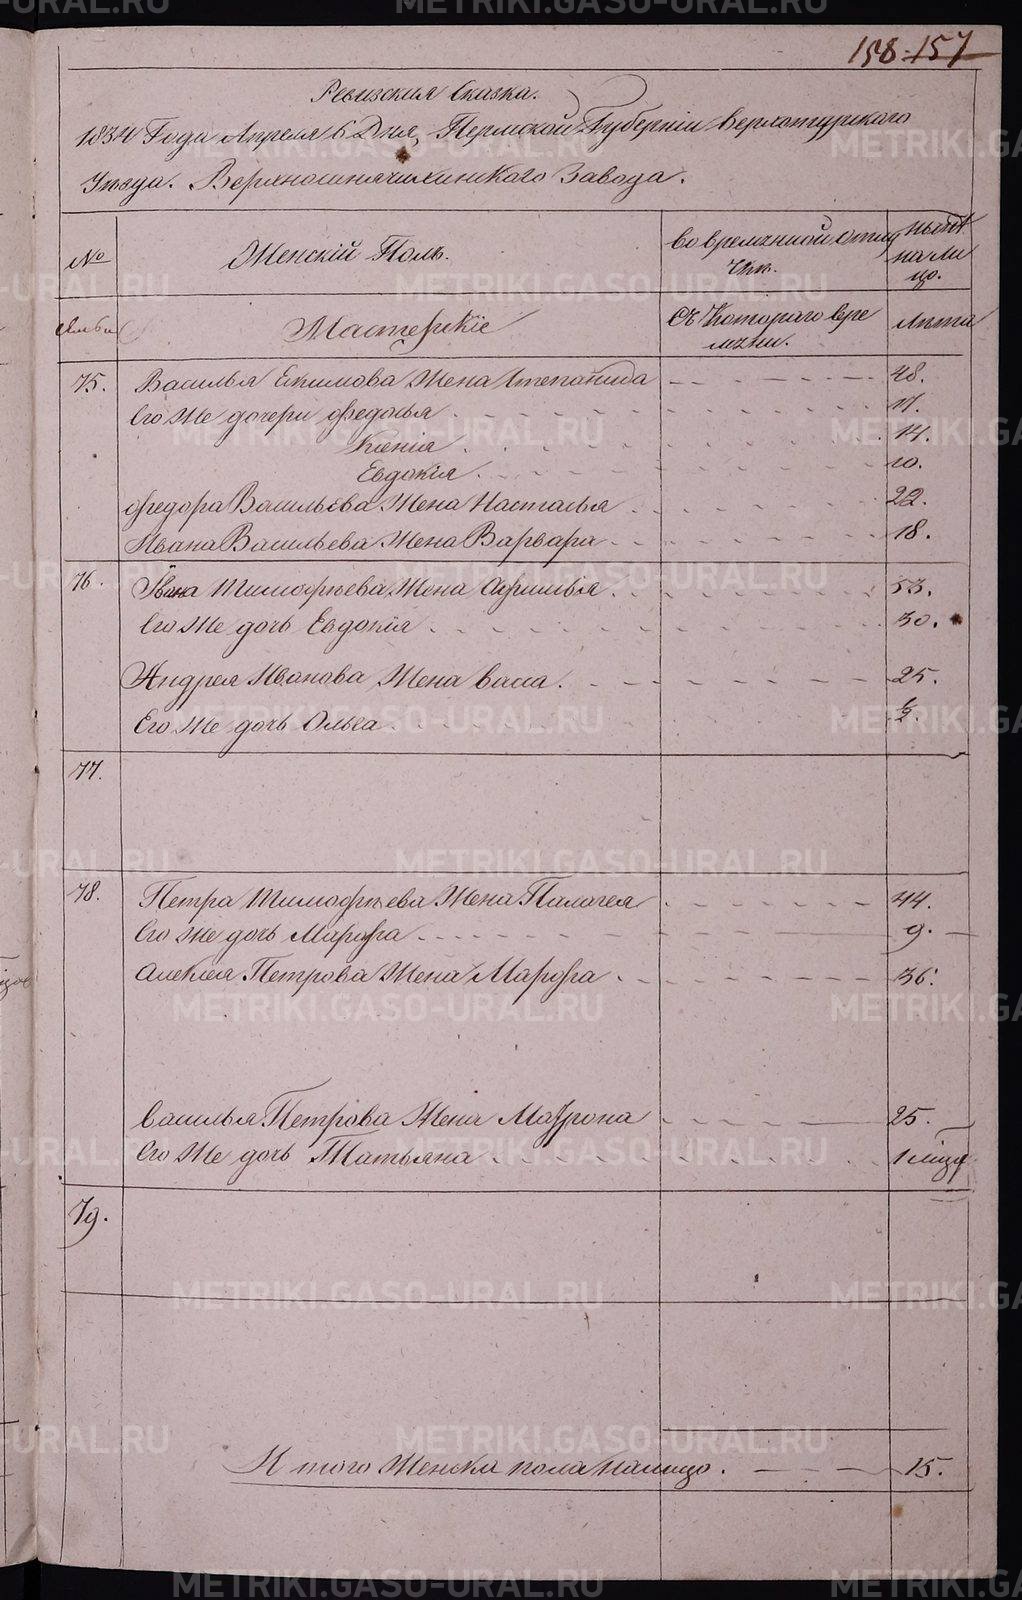 158 157
Ревизская Сказка.
1834 Года Апреля 6 Дня, Пермской Губерніи Верхотурскаго
Уѣзда. Верхносинячихинского Завода.
№ Женскій Полъ. во временной отлу ныне
чке. на ли
цо.
семьи Мастерскіе съ Котораго вре лѣта
мени.
75. Василья Екимова Жена Степанида 48.
Его Же дочери Федосья 17.
Ксенія 14.
Евдокія 10.
Федора Васильева Жена Настасья 22.
Ивана Васильева Жена Варвара 18.
76. Ивана Тимофѣева Жена Афимья 53.
Его Же дочь Евдокія 30.
Андрея Иванова Жена васса. 25.
Его Же дочь Ольга ½.
77.
78. Петра Тимофѣева Жена Палагея 44.
Его Же дочь Марфа 9.
Алексея Петрова Жена Марфа 36.
Василья Петрова Жена Матрона 25.
Его Же дочь Татьяна 1
79.
И того Женска пола налицо. 15.
METRIKI.GASO-URAL.RU